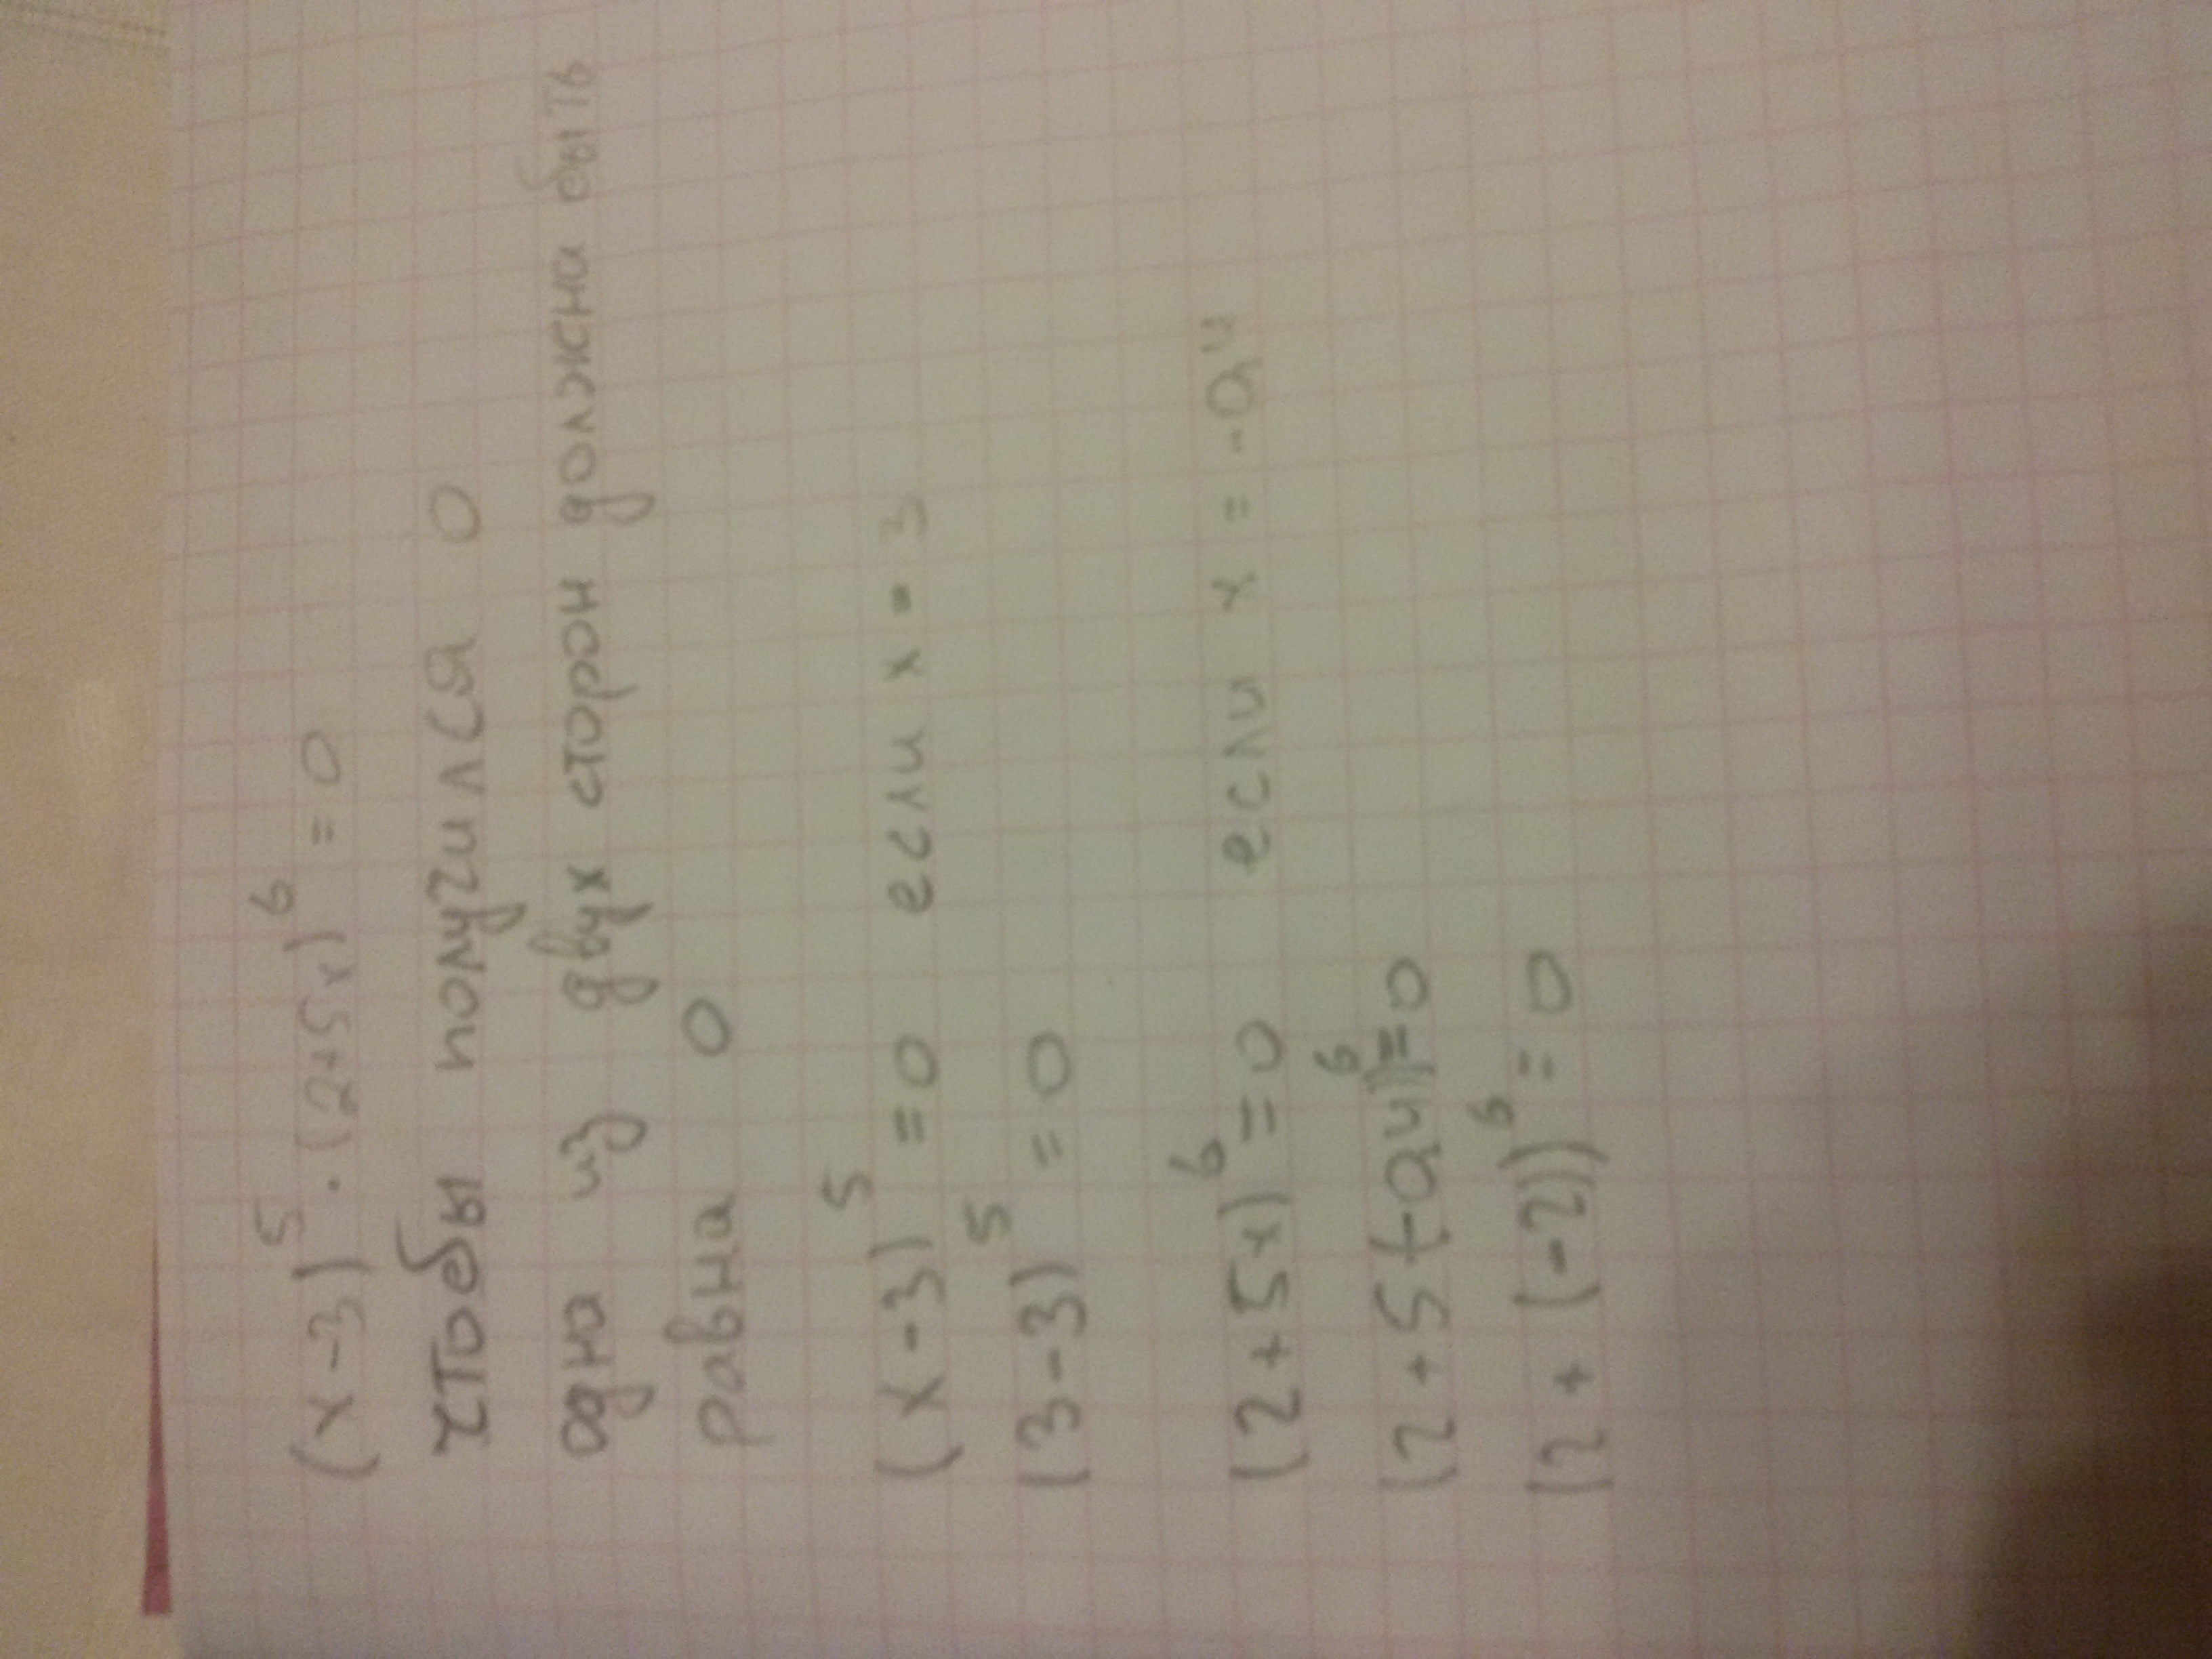 (x-3)⁵·(2+5x)⁶=0
чтобы получился 0
одна из двух сторон должна быть
равна 0
(x-3)⁵=0 если x=3
(3-3)⁵=0
(2+5x)⁶=0 если x=-0,4
(2+5(-0,4))⁶=0
(2+(-2))⁶=0